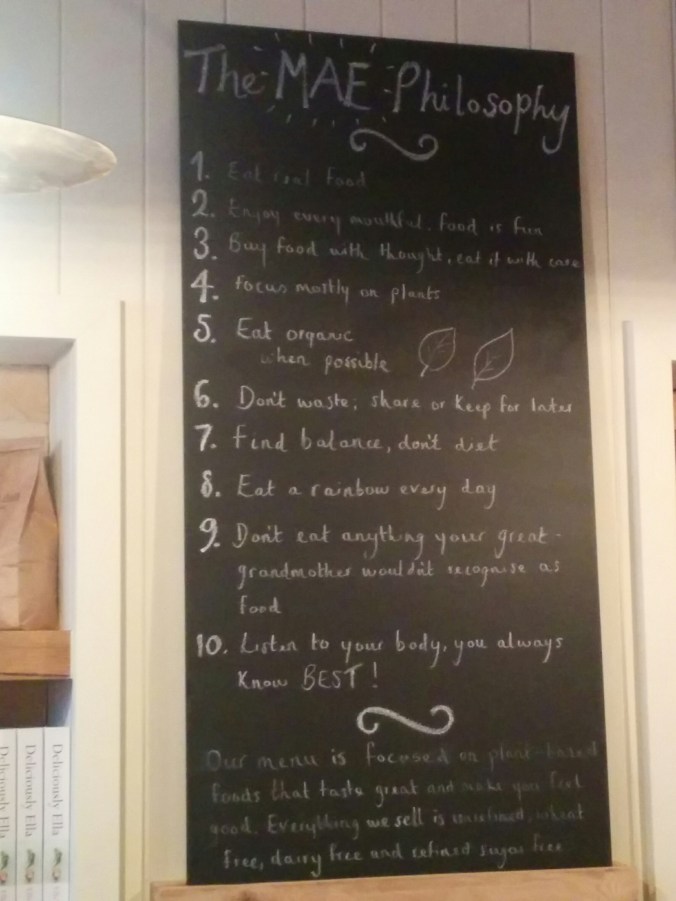 The MAE Philosophy
1. Eat real food
2. Enjoy every mouthful. food is fun
3. Buy food with thought, eat it with care
4. Focus mostly on plants
5. Eat organic
when possible
6. Don't waste; share or keep for later
7. Find balance, don't diet
8. Eat a rainbow every day
9. Don't eat anything your great-
grandmother wouldn't recognise as
food
10. Listen to your body, you always
know BEST!
Our menu is focused on plant-based
foods that taste great and make you feel
good. Everything we sell is unrefined, wheat
free, dairy free and refined sugar free
Deliciously Ella
Deliciously Ella
Deliciously Ella